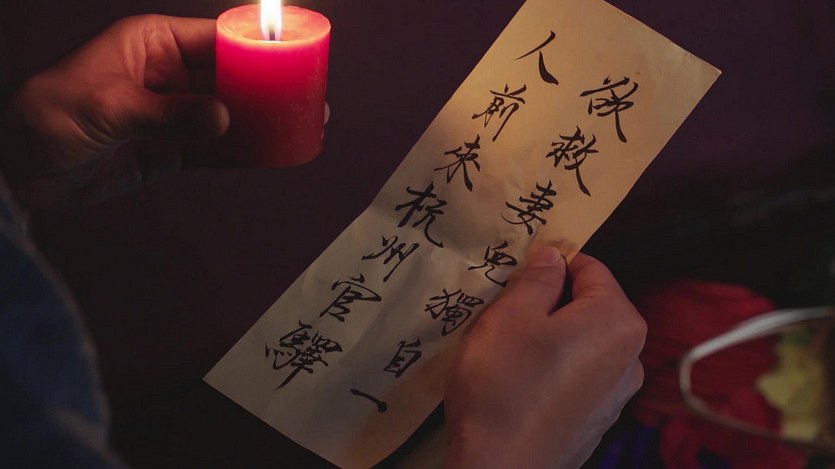 欲救妻兒獨自一
人前来杭州官驛